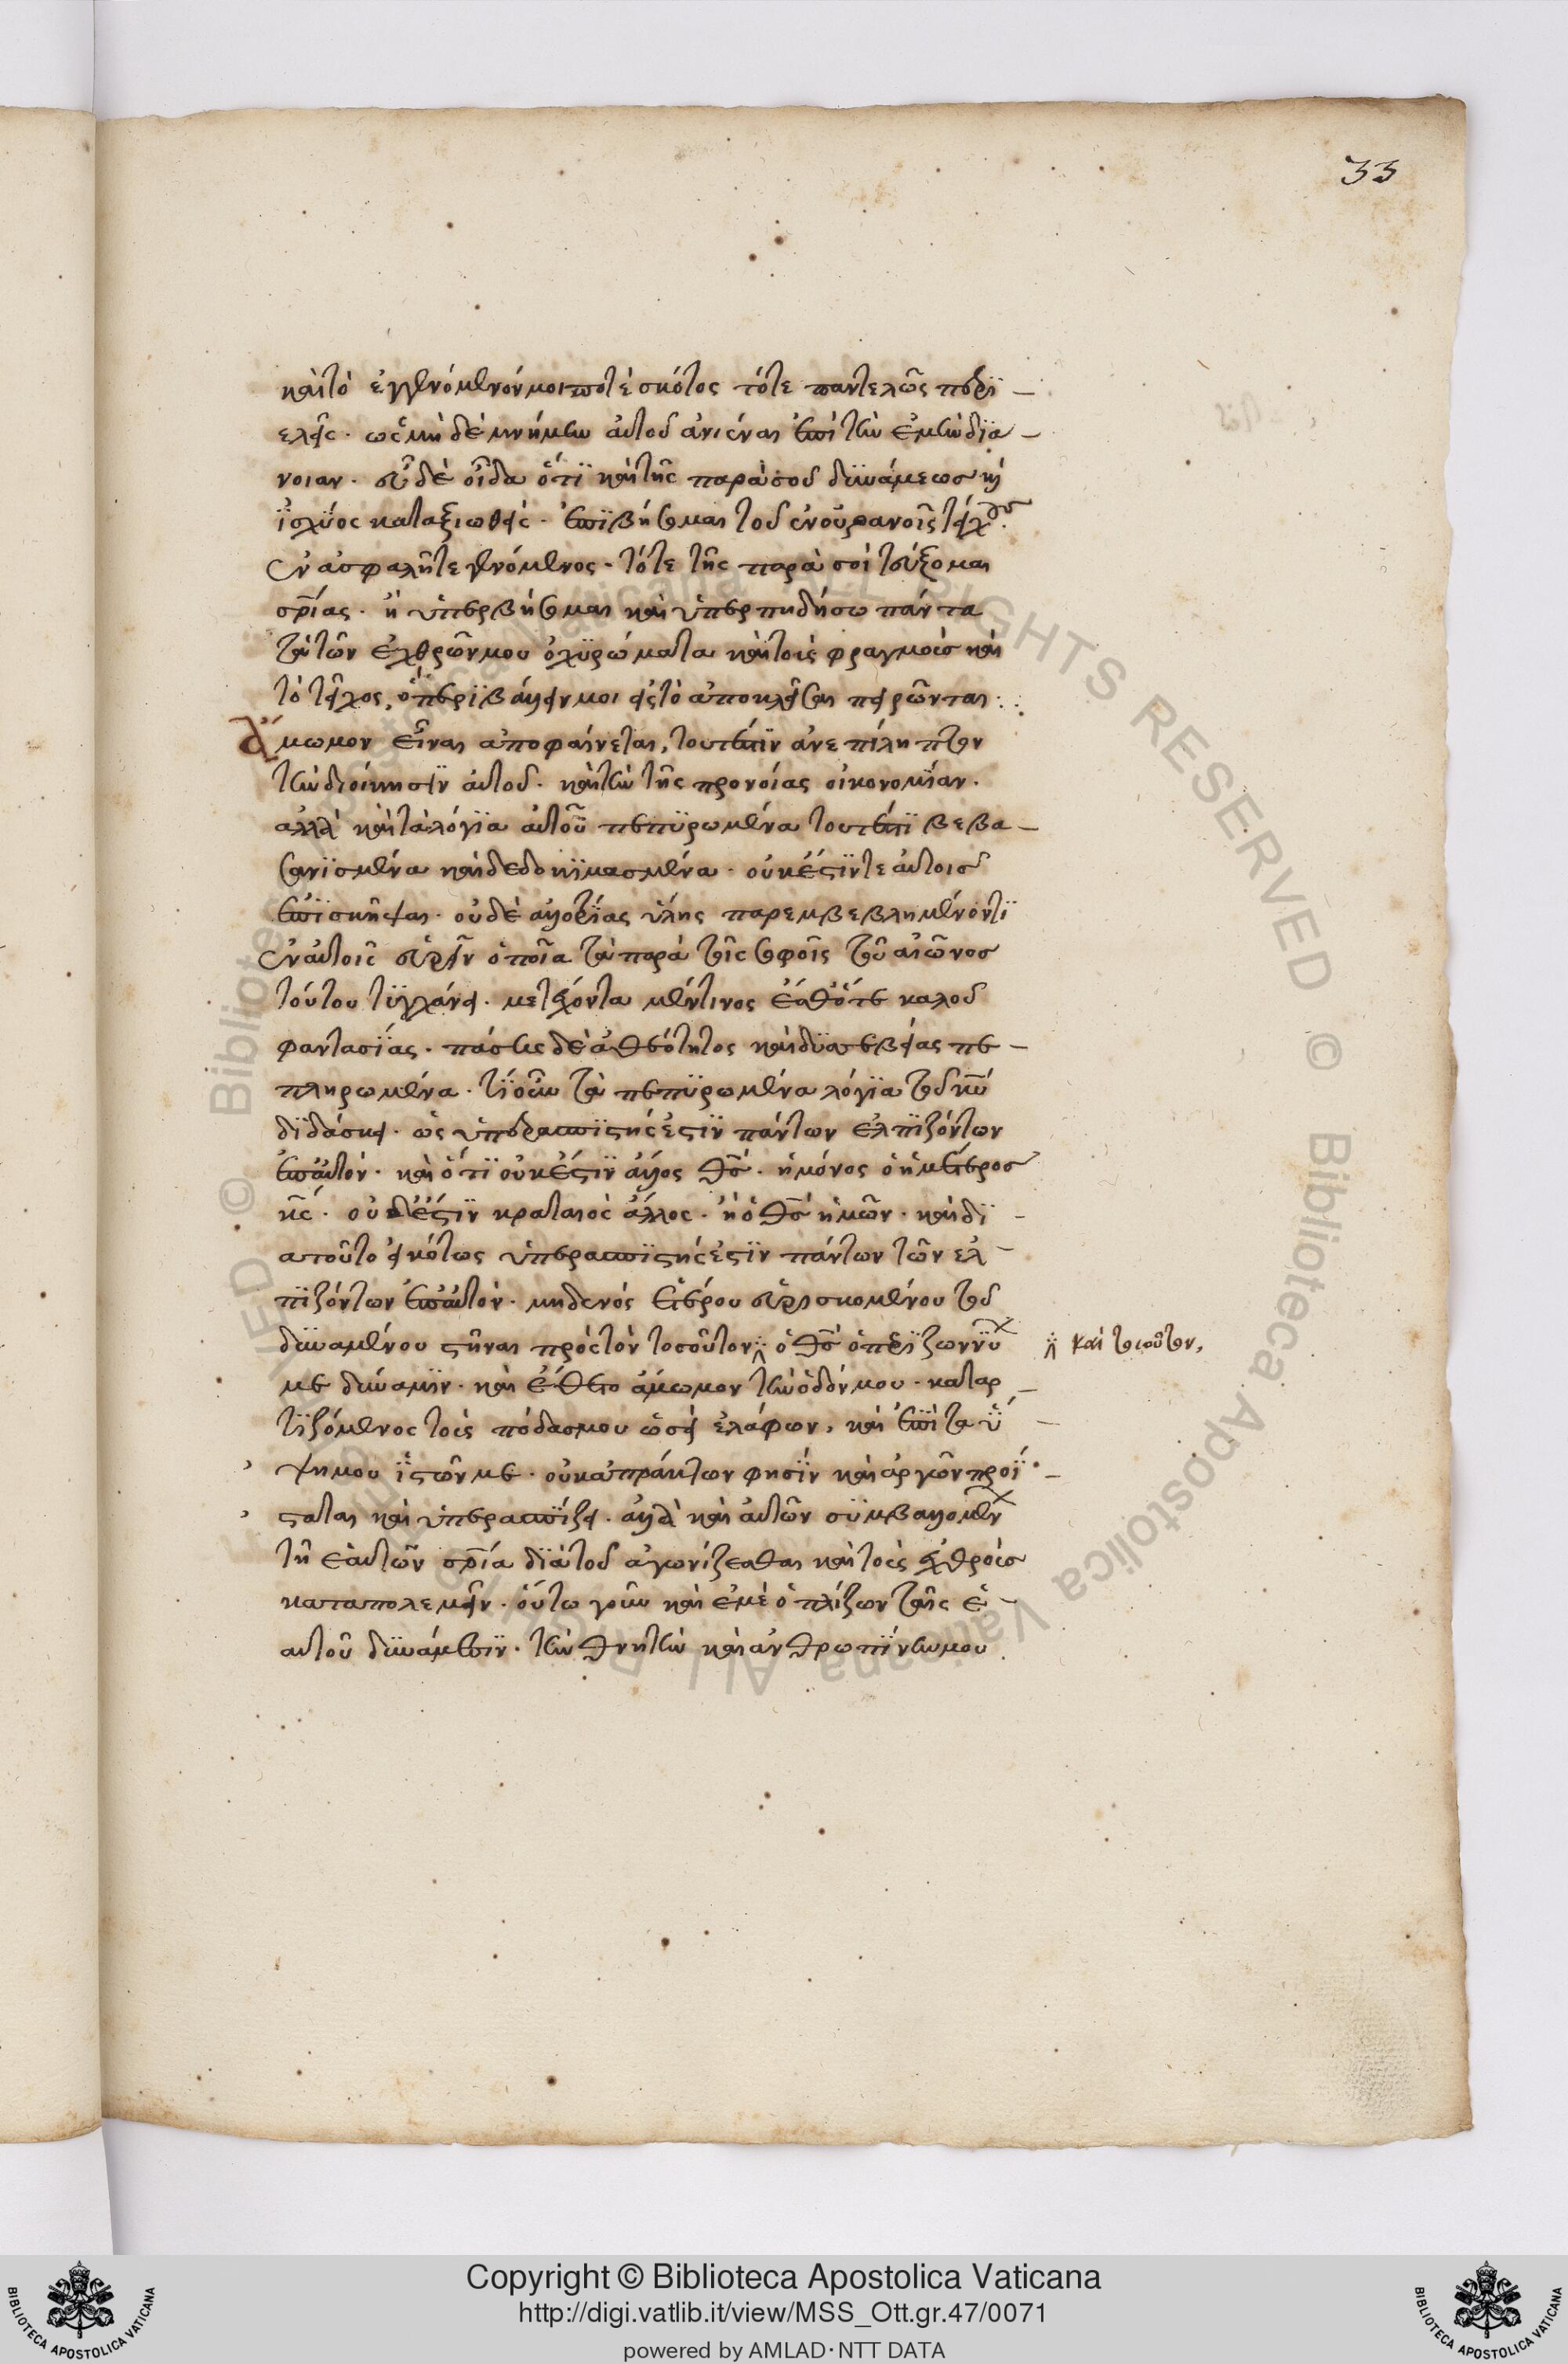 33
καὶ τὸ ἐγγενόμενόν μοι ποτὲ σκότος τότε παντελῶς περϊ –
ελεῖς · ὡς μὴ δὲ μνήμην αὐτοῦ ἀνιέναι ἐπὶ τὴν ἐμὴν δϊα –
νοιαν · εὖ δὲ οἶδα ὅτϊ καὶ τῆς παρὰ σοῦ δυνάμεως καὶ
ἰσχύος καταξιωθεὶς · ἐπϊβήσομαι τοῦ ἐν οὐρανοῖς τείχους ·
ἐν ἀσφαλεῖ τε γενόμενος · τότε τῆς παρὰ σοὶ τεύξομαι
σρίας · ἢ ὑπερβήσομαι καὶ ὑπερπηδήσω πάντα
τὰ τῶν ἐχθρῶν μου ὀχϋρώματα καὶ τοὺς φραγμοὺς καὶ
τὸ τεῖχος, ὅπερ ϊβάλλειν μοι εἰς τὸ ἀποκλεῖσαι πειρῶνται :
ἄμωμον εἶναι ἀποφαίνεται, τουτέστϊν ἀνεπίληπτον
τὴν διοίκησϊν αὐτοῦ · καὶ τὴν τῆς προνοίας οἰκονομίαν ·
ἀλλὰ καὶ τὰ λόγϊα αὐτοῦ πεπϋρωμένα τουτέστϊ βεβα –
σανϊσμένα καὶ δεδοκϊμασμένα · οὐκ ἔστϊν τε αὐτοῖς
ἐπϊσκῆψαι · οὐδὲ ἀλλοτρίας ὕλης παρεμβεβλημένον τϊ
ἐν αὐτοῖς εὑρεῖν ὁποῖα τὰ παρὰ τοῖς σοφοῖς τοῦ αἰῶνος
τούτου τϋγχάνει · μετέχοντα μέν τινος ἔσθ' ὅτε καλοῦ
φαντασϊας · πάσης δὲ ἀθεότητος καὶ δϋσσεβείας πε –
πληρωμένα · τί οὖν τὰ πεπϋρωμένα λόγϊα τοῦ κυ
δϊδάσκει · ὡς ὑπερασπϊστής ἐστϊν πάντων ἐλπϊζόντων
ἐπ' αὐτόν · καὶ ὅτϊ οὐκ ἔστϊν ἄλλος θς · ἢ μόνος ὁ ἡμέτερος
κς · οὐδ' ἔστϊν κραταιὸς ἄλλος · ἢ ὁ θς ἡμῶν · καὶ δϊ –
α τοῦτο εἰκότως ὑπερασπϊστής ἐστϊν πάντων τῶν ἐλ –
πϊζόντων ἐπ' αὐτόν · μηδενὸς ἑτέρου εὑρισκομένου τοῦ
δυναμένου στῆναι πρὸς τὸν τοσοῦτον · ὁ θς ὁ περϊζωννύων
καὶ τοιοῦτον,
με δύναμϊν · καὶ ἔθετο ἄμωμον τὴν ὁδόν μου · καταρ –
τϊζόμενος τοὺς πόδας μου ὡσεὶ ἐλάφου, καὶ ἐπὶ τὰ ὑ –
ψη μου ἱστῶν με · οὐκ ἀπράκτων φησϊν καὶ ἀργῶν προΐ –
σταται καὶ ὑπερασπϊζει · ἀλλὰ καὶ αὐτῶν σϋμβαλλομένων
τῇ ἑαυτῶν σρία δϊὰ τοῦ ἀγωνίζεσθαι καὶ τοὺς ἐχθροὺς
καταπολεμεῖν · οὕτω γοῦν καὶ ἐμὲ ὁπλίζων ταῖς ἑ –
αυτοῦ δυνάμεσϊν · τὴν θνητὴν καὶ ἀνθρωπϊνην μου
Copyright © Biblioteca Apostolica Vaticana
http://digi.vatlib.it/view/MSS_Ott.gr.47/0071
powered by AMLAD·NTT DATA